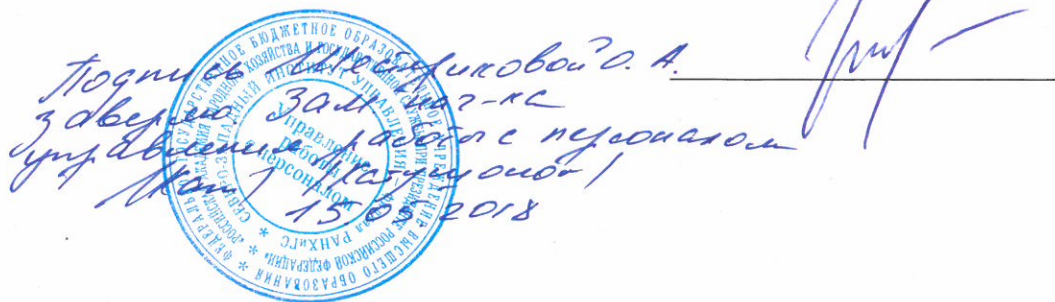 Подпись Шестриковой О. А.
заверяю. Зам. нач-ка
управления работы с персоналом
15.05 2018
ФЕДЕРАЛЬНОЕ ГОСУДАРСТВЕННОЕ БЮДЖЕТНОЕ ОБРАЗОВАТЕЛЬНОЕ УЧРЕЖДЕНИЕ ВЫСШЕГО ОБРАЗОВАНИЯ
РОССИЙСКАЯ АКАДЕМИЯ НАРОДНОГО ХОЗЯЙСТВА И ГОСУДАРСТВЕННОЙ СЛУЖБЫ ПРИ ПРЕЗИДЕНТЕ РОССИЙСКОЙ ФЕДЕРАЦИИ
СЕВЕРО-ЗАПАДНЫЙ ИНСТИТУТ УПРАВЛЕНИЯ РАНХиГС
Управление
работы
с персоналом